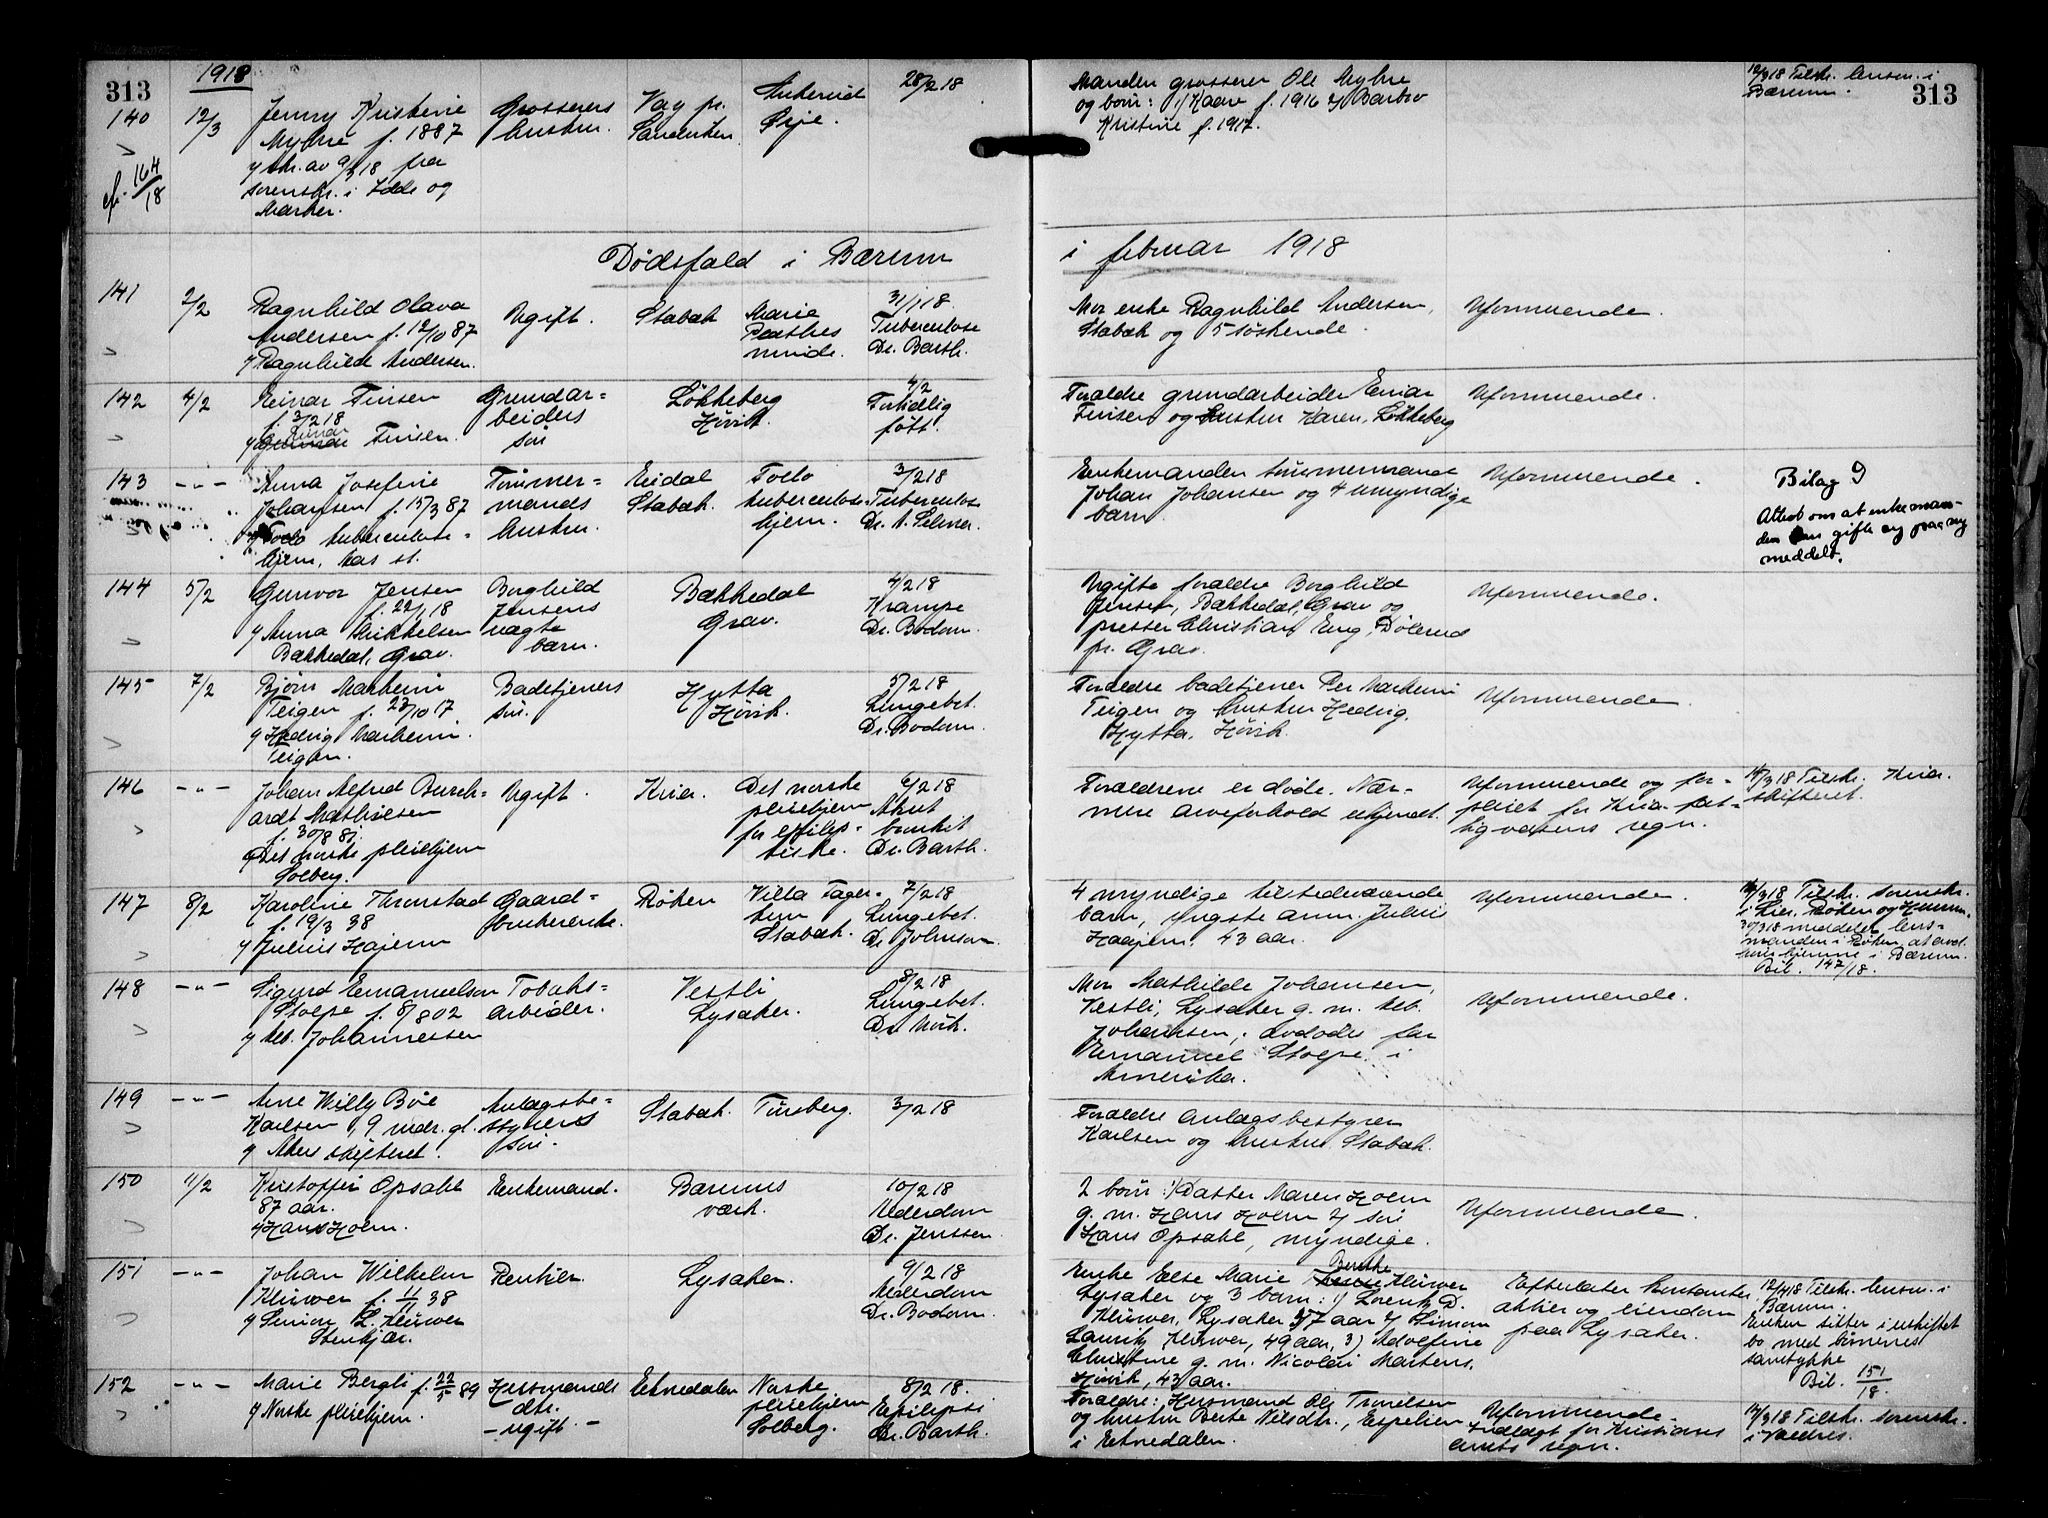 313
1918
140
12/3
Jenny Kristine
Myhre f. 1887
skr. av 9/3 18 fra
sorenskr. i Idde og
Marker.
Grosserers
hustru.
Vøy pr.
Sandviken
Ørje.
28/2 18
Manden grosserer Ole Myhre
og børn: 1) Kaare f. 1916 2) Barbro
Kristine f. 1917.
12/3 18 Tilskr. lensm. i
Bærum.
313
cfr. 164/18
Dødsfald i Bærum
i februar 1918
141
2/2
Ragnhild Olava
Andersen f. 12/10 87
Ragnhild Andersen.
Ugift.
Stabæk
Marie
Plathes
minde.
31/1 18
Tuberculose
Dr. Barth.
Mor enke Ragnhild Andersen,
Stabæk og 5 søskende.
Uformuende.
142
4/2
Einar Finsen
f. 3/2 18
Einar Finsen.
Grundar-
beiders
søn
Løkkeberg
Høvik
4/2
Fortidlig
født.
Forældre grundarbeider Einar
Finsen og hustru Karen, Løkkeberg
Uformuende.
143
-"-
Anna Josefine
Johansen f. 15/3 87
Follo tuberculose-
hjem, Aas st.
Tømmer-
mands
hustru.
Eidal
Stabæk.
Follo
tuberculose
hjem.
3/2 18
Tuberculose
Enkemanden tømmermand
Johan Johansen og 4 umyndige
barn.
Uformuende.
Bilag 9
Attest om at enkeman-
den kan gifte sig paa ny
meddelt.
144
5/2
Gunvor Jensen
f. 22/1 18
Anna Mikkelsen
Bækkedal, Grav.
Borghild
Jensens
uægte
barn.
Bækkedal
Grav.
4/2 18
Krampe
Dr. Bodom.
Ugifte forældre Borghild
Jensen, Bækkedal, Grav og
presser Christian Eng, Dølerud
pr. Grav.
Uformuende.
145
7/2
Bjørn Markeim
Teigen f. 23/10 17
Hedvig Markeim
Teigen.
Badetjeners
søn.
Hytta
Høvik.
5/2 18
Lungebet.
Dr. Bodom.
Forældre badetjener Per Markeim
Teigen og hustru Hedvig,
Hytta, Høvik.
Uformuende.
146
-"-
Johan Alfred Burch-
ardt Mathiesen
f. 30/8 81.
Det norske pleiehjem
Solberg.
Ugift.
Kria.
Det norske
pleiehjem
for epilep-
tiske.
6/2 18
Akut
bronkit
Dr. Barth.
Forældrene er døde. Nær-
mere arveforhold ukjendt.
Uformuende og for-
pleiet for Kria. fat-
tigvæsens regn.
14/3 18 Tilskr. Kria.
skifteret.
147
8/2
Karoline Thronstad
f. 19/3 38
Julius Haajem
Gaard-
brukerenke.
Røken
Villa Fager-
tun
Stabæk.
7/2 18
Lungebet.
Dr. Johnson.
4 myndige tilstedeværende
barn, yngste anm. Julius
Haajem, 43 aar.
Uformuende.
14/3 18 Tilskr. sorenskr.
i Lier, Røken og Hurum.
30/3 18 meddelt lens-
manden i Røken, at avd.
var hjemme i Bærum.
Bil. 147/18.
148
-"-
Sigurd Emanuelson
Stolpe f. 8/8 02
Alb. Johannessen
Tobaks-
arbeider.
Vestli
Lysaker.
8/2 18
Lungebet.
Dr. Mørk.
Mor Mathilde Johansen,
Vestli, Lysaker g. m. Alb.
Johansen; avdødes far
Emanuel Stolpe i
Amerika.
Uformuende.
149
-"-
Arne Willy Bøe
Karlsen, 9 mdr. gl.
Akers skifteret.
Anlægsbe-
styrers
søn.
Stabæk.
Tunsberg.
3/2 18
Forældre anlægsbestyrer
Karlsen og hustru Stabæk.
150
11/2
Kristoffer Opsahl
87 aar.
Hans Holm.
Enkemand.
Bærums
verk.
10/2 18
Alderdom
Dr. Jenssen.
2 børn: 1) Datter Maren Holm
g. m. Hans Holm 2) søn
Hans Opsahl, myndige.
Uformuende.
151
-"-
Johan Wilhelm
Klüwer f. 11/11 38
Simon L. Klüwer
Stenkjær.
Rentier.
Lysaker.
9/2 18
Alderdom
Dr. Bodom.
Enke Else Marie Benthe Klüwer
Lysaker og 3 barn: 1) Lorentz D.
Klüwer, Lysaker 57 aar 2) Simon
Lauritz Klüwer, 49 aar, 3) Adolfine
Christine g. m. Nicolai Martens,
Høvik, 43 aar.
Efterlater kontanter
aktier og eiendom
paa Lysaker.
12/4 18 Tilskr. lensm. i
Bærum.
Enken sitter i uskiftet
bo med børnenes
samtykke
Bil. 151/18.
152
-"-
Marie Bergli f. 22/5 89
Norske pleiehjem.
Husmands
dtr.
- ugift. -
Etnedalen
Norske
pleiehjem
Solberg.
8/2 18.
Epilepsi
Dr. Barth.
Forældre: Husmand Ole Tronelsen
og hustru Berte Nilsdtr., Espelien
i Etnedalen.
Uformuende-
Indlagt for Kristians
amts regn.
14/3 18 Tilskr. sorenskr.
i Valdres.